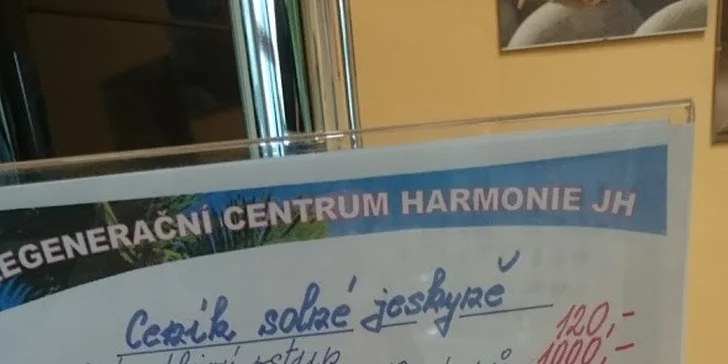 REGENERAČNÍ CENTRUM HARMONIE JH
Ceník solné jeskyně
120,-
vstup 1000,-